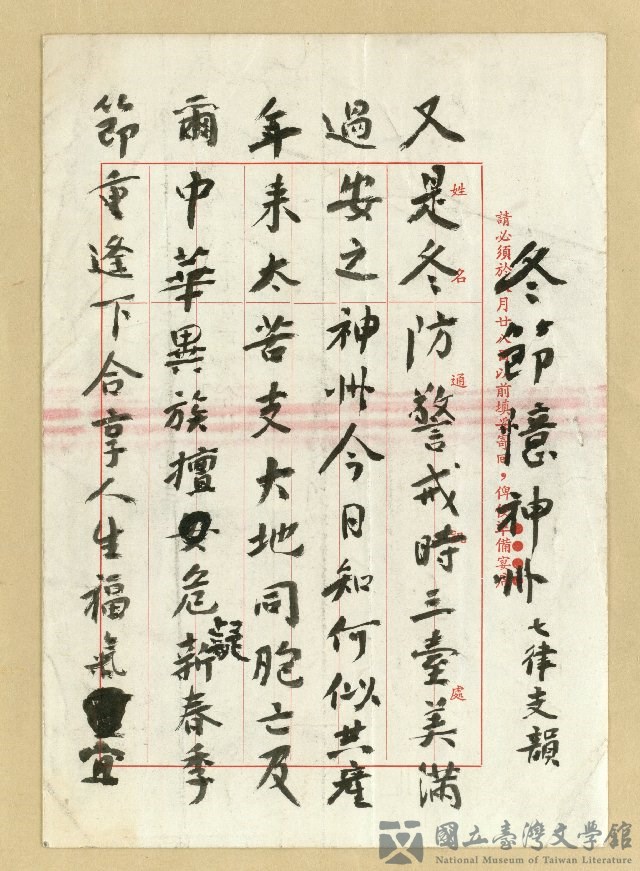 冬節憶神州 七律支韻
請必須於月廿八以前填寄回，俾備宴
姓名 通訊處
又是冬防警戒時三臺美滿
過安之神州今日知何似共產
年来太苦支大地同胞亡及
爾中華異族擅疑危新春季
節重逢下合享人生福氣宜
國立臺灣文學館
National Museum of Taiwan Literature